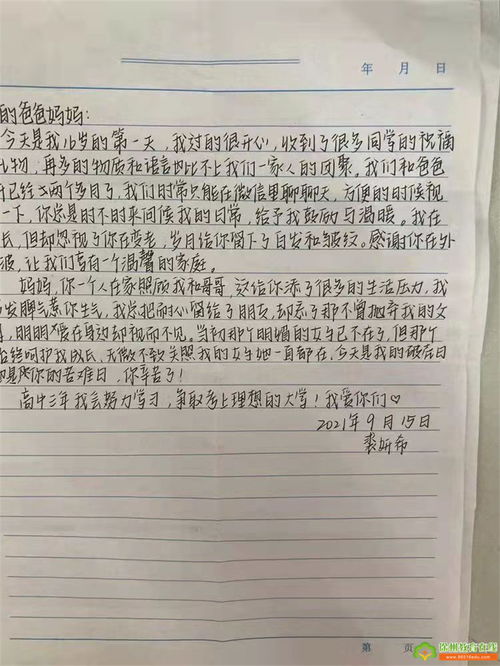 年 月 日
的爸爸妈妈:
今天是我16岁的第一天,我过的很开心,收到了很多同学的祝福
礼物,再多的物质和语言也比不上我们一家人的团聚。我们和爸爸
已经两个多月了,我们时常只能在微信里聊聊天,方便的时候视
一下,你总是时不时来问候我的日常,给予我鼓励与温暖。我在
长,但却忽视了你在变老,岁月给你留下了白发和皱纹。感谢你在外
波,让我们享有一个温馨的家庭。
妈妈,你一个人在家照顾我和哥哥,这给你添了很多的生活压力,我
发脾气惹你生气,我总把耐心留给了朋友,却忘了那不曾抛弃我的父
母,明明爱在身边却视而不见。当初那个明媚的女子已不在了,但那个
始终呵护我成长,无微不致关照我的女子她一直都在,今天是我的破蛋日
却是你的苦难日,你辛苦了!
高中三年我会努力学习,争取考上理想的大学!我爱你们♡
2021年9月15日
裘妍希
第 页
徐州教育在线